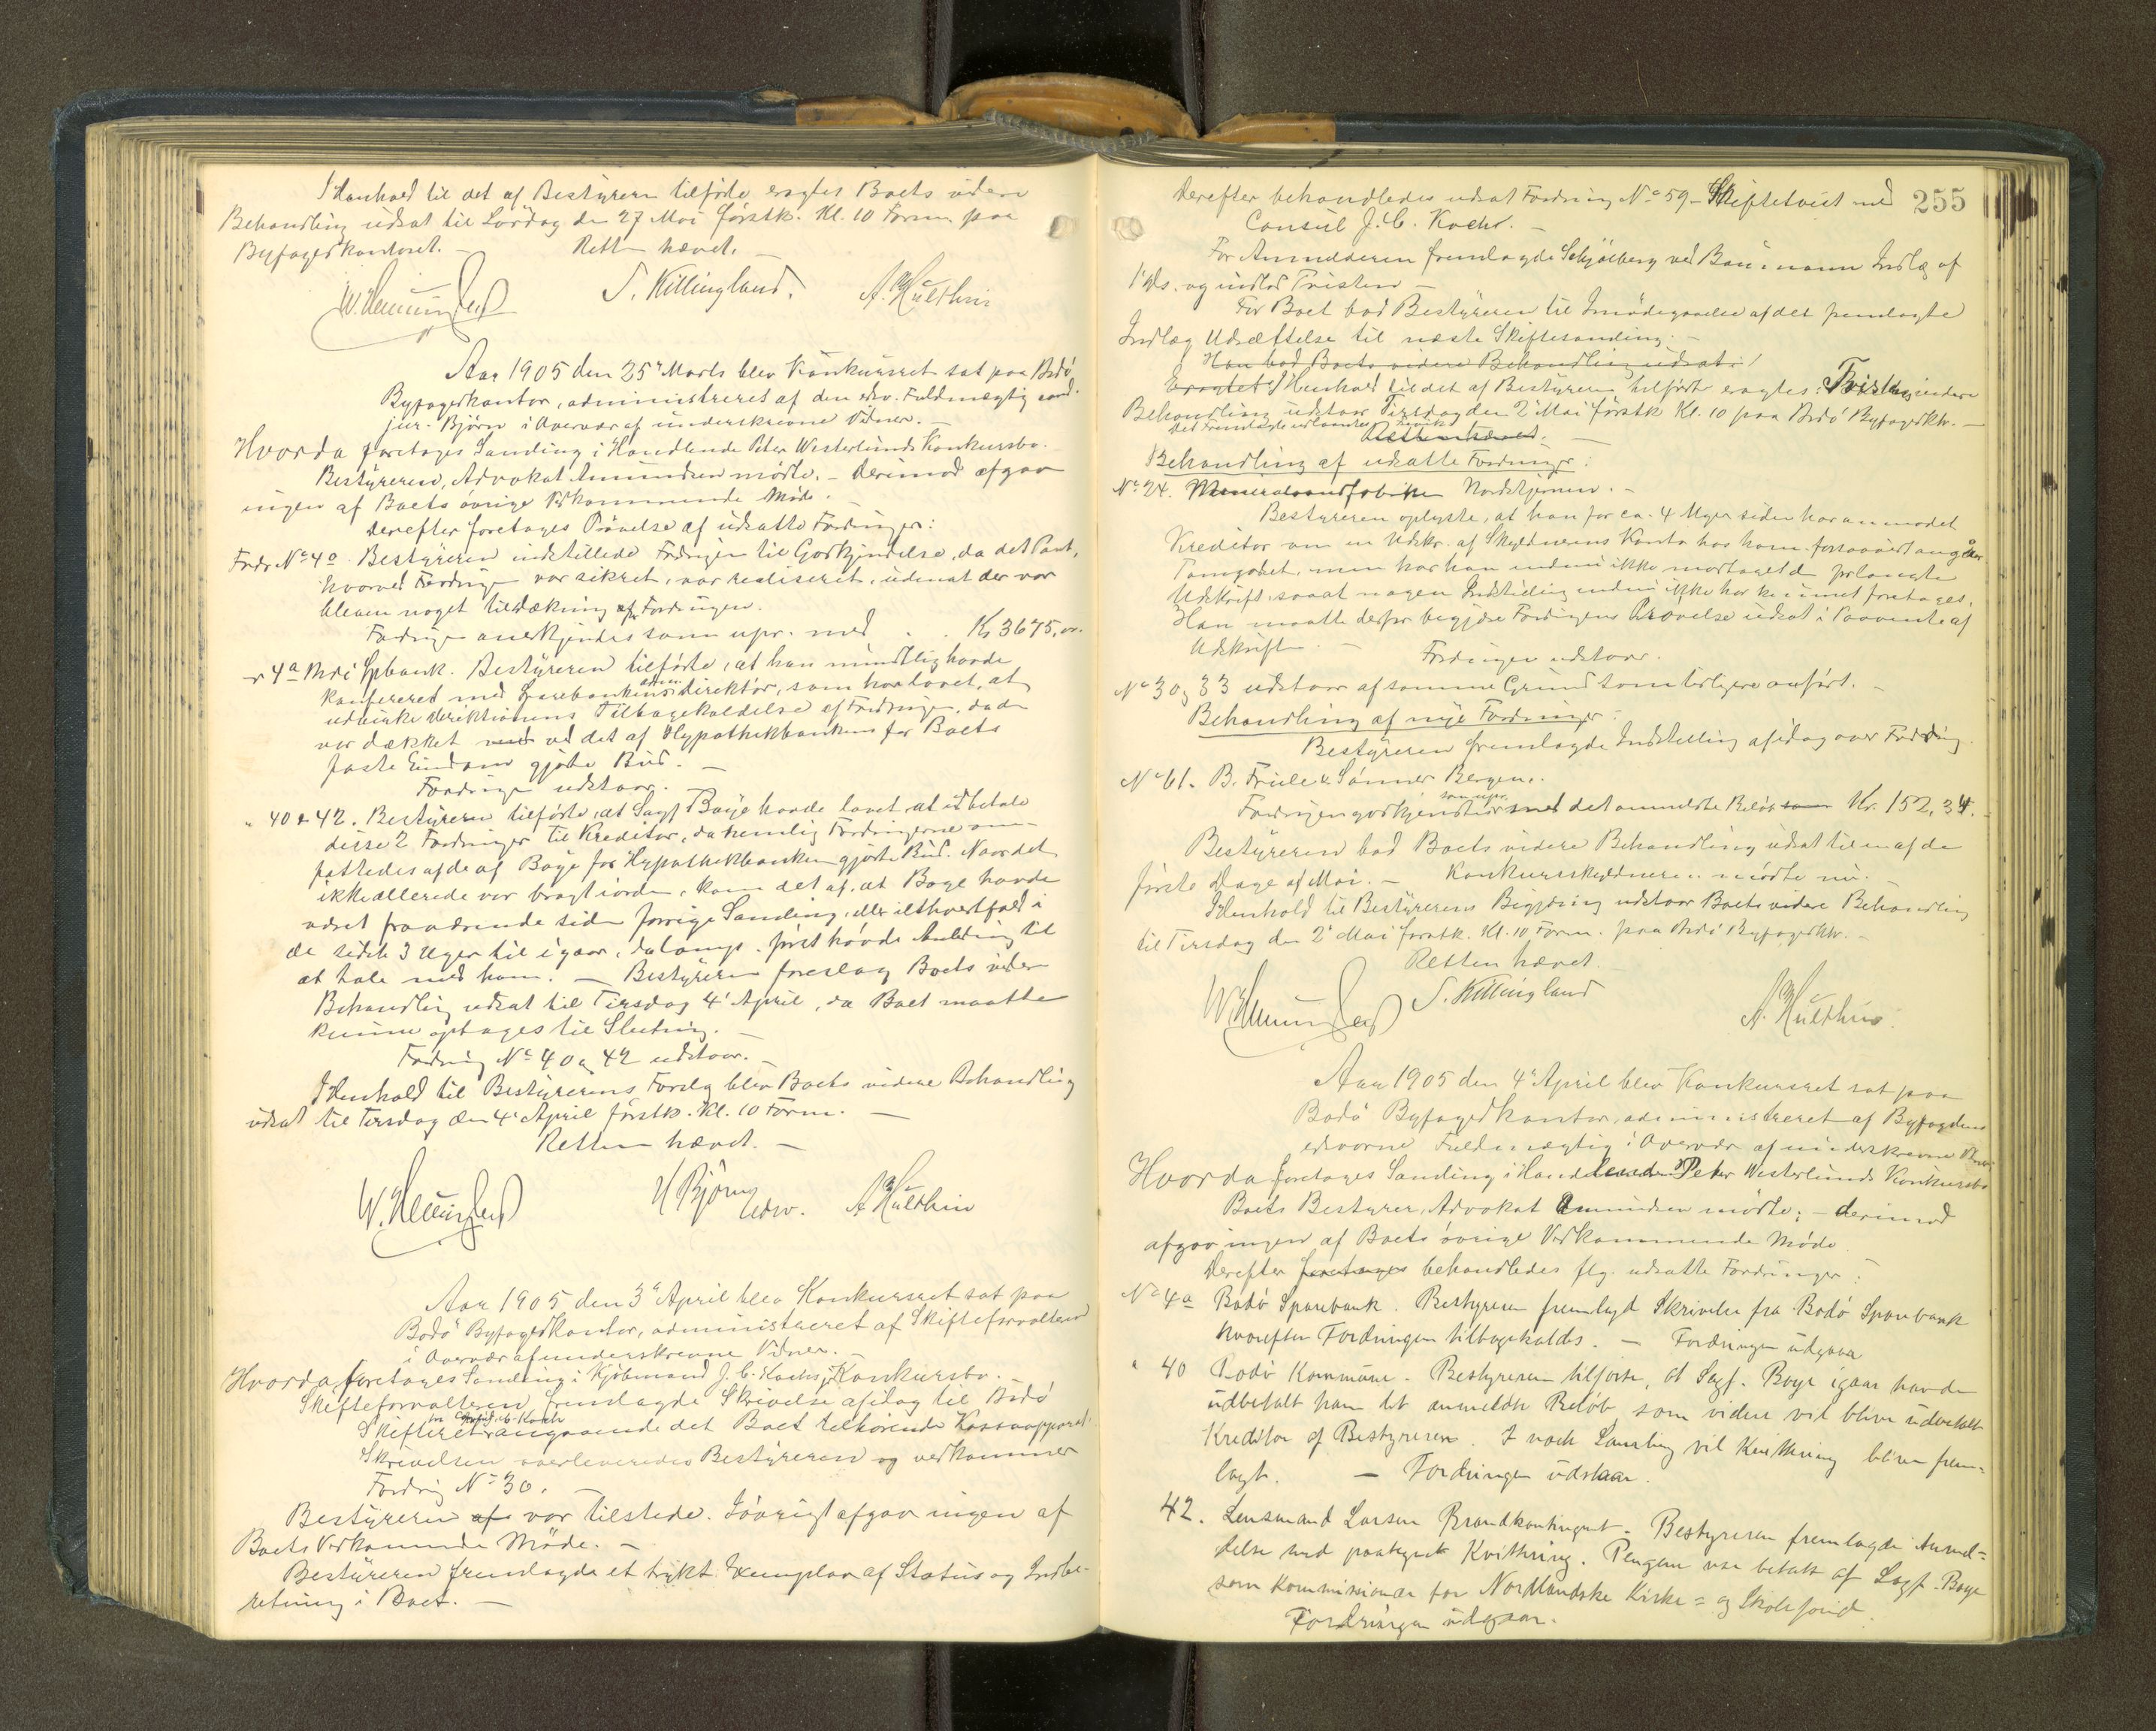 I Henhold til det af Bestyreren tilførte eragtes Boets videre
Behandling udsat til Lørdag den 27 Mai førstk. Kl. 10 Form. paa
Byfogedkontoret. — Retten hævet. —
S. Killingland. A. Hulthin
Aar 1905 den 25' Marts blev Konkursret sat paa Bodø
Byfogedkontor, administreret af den edsv. Fuldmægtig cand.
jur. Bjørn i Overvær af underskrevne Vidner. —
Hvorda foretoges Samling i Handlende Peter Westerlunds Konkursbo.
Bestyreren, Advokat Amundsen mødte. — Derimod afgav
ingen af Boets øvrige Vedkommende Møde.
Derefter foretoges Prøvelse af udsatte Fordringer:
Fordr. No 4o. Bestyreren indstillede Fordringen til Godkjendelse, da det Pant,
hvorved Fordringen var sikret, var realiseret, uden at der var
bleven noget til Dækning af Fordringen.
Fordringen anerkjendes som upr. med . . Kr 3675,oo.
" 4a Bodø Spbank. Bestyreren tilførte, at han mundtlig havde
konfereret med Sparebankens adm. direktør, som har lovet, at
udvirke Direktionens Tilbagekaldelse af Fordringen, da den
var dækket ved det af Hypothekbanken for Boets
faste Eiendom gjorte Bud. —
Fordringen udstaar. —
" 40 & 42. Bestyreren tilførte, at Sagf. Boye havde lovet at udbetale
disse 2 Fordringer til Kreditor, da nemlig Fordringerne om-
fattedes af de af Boye for Hypothekbanken gjorte Bud. Naar det
ikke allerede var bragt i orden, kom det af, at Boye havde
været fraværende siden forrige Samling, eller i ethvert fald i
de sidste 3 Uger til igaar, da komp. først havde Anledning til
at tale med ham. — Bestyreren foreslog Boets videre
Behandling udsat til Tirsdag 4' April, da Boet maatte
kunne optages til Slutning. —
Fordring No 40 og 42 udstaar. —
I Henhold til Bestyrerens Forslag blev Boets videre Behandling
udsat til Tirsdag den 4' April førstk. Kl. 10 Form. —
Retten hævet. —
H Bjørn edsv. A Hulthin
Aar 1905 den 3' April blev Konkursret sat paa
Bodø Byfogedkontor, administreret af Skifteforvalteren
i Overvær af underskrevne Vidner. —
Hvorda foretoges Samling i Kjøbmand J. C. Kochs Konkursbo.
Skifteforvalteren fremlagde Skrivelse af idag til Bodø
Skifteret fra Consul J. C. Koch angaaende det Boet tilhørende Kassaapparat.
Skrivelsen overleveredes Bestyreren og vedkommer
Fordring No 30. —
Bestyreren af var tilstede. Iøvrigt afgav ingen af
Boets Vedkommende Møde. —
Bestyreren fremlagde et trykt Exemplar af Status og Indbe-
retning i Boet. —
255
Derefter behandledes udsat Fordring No 59 – Skiftetvist med
Consul J. C. Koch. —
For Anmelderen fremlagde Schjølberg ved Baumann Indlæg af
1' ds. og indlod Tvisten —
For Boet bad Bestyreren til Imødegaaelse af det fremlagte
Indlæg Udsættelse til næste Skiftesamling. —
Han bad Boets videre Behandling udsat:
Eragtet: I Henhold til det af Bestyreren tilførte eragtes: Tvistens videre
Behandling udstaar Tirsdag den 2' Mai førstk Kl. 10 paa Bodø Byfogedktr. —
Det Fremlagte udlaantes
Retten hævet. —
Behandling af udsatte Fordringer:
No 24. Mineralvandfabriken Nordstjernen. —
Bestyreren oplyste, at han for ca. 4 Uger siden har anmodet
Kreditor om en Udskr. af Skyldnerens Konto hos ham forsaavidt angaar
Tomgodset, men har han endnu ikke modtaget den forlangte
Udskrift, saa at nogen Indstilling endnu ikke har kunnet foretages.
Han maatte derfor begjære Fordringens Prøvelse udsat i Paavente af
Udskriften. — Fordringen udstaar.
No 30 og 33 udstaar af samme Grund som tidligere anført. —
Behandling af nye Fordringer:
Bestyreren fremlagde Indstilling af idag over Fordring
No 61. B. Friele & Sønner Bergen.
Fordringen godkjendtes som upr. med det anmeldte Beløb som Kr. 152,34.
Bestyreren bad Boets videre Behandling udsat til en af de
første Dage af Mai. — Konkursskyldneren mødte nu. —
I Henhold til Bestyrerens Begjæring udstaar Boets videre Behandling
til Tirsdag den 2' Mai førstk. Kl. 10 Form. paa Bodø Byfogedktr. —
Retten hævet.
S. Killingland A. Hulthin
Aar 1905 den 4' April blev Konkursret sat paa
Bodø Byfogedkontor, administreret af Byfogdens
edsvorne Fuldmægtig i Overvær af underskrevne Vidner
Hvorda foretoges Samling i Handlende Peter Westerlunds Konkursbo
Boets Bestyrer, Advokat Amundsen mødte; – derimod
afgav ingen af Boets øvrige Vedkommende Møde
Derefter foretoges behandledes flg. udsatte Fordringer:
No 4a Bodø Sparebank. Bestyreren fremlagd Skrivelse fra Bodø Sparebank
hvorefter Fordringen tilbagekaldes. — Fordringen udgaar
" 40 Bodø Kommune. Bestyreren tilførte, at Sagf. Boye igaar havde
udbetalt ham det anmeldte Beløb, som videre vil blive udbetalt
Kreditor af Bestyreren. I næste Samling vil Kvittering blive frem-
lagt. — Fordringen udstaar.
42. Lensmand Larsen Brandkontingent. Bestyreren fremlagde Anmel-
delse med paategnet Kvittering. Pengene var betalt af Sagf. Boye
som Kommissionær for Nordlandske Kirke- og Skolefond.
Fordringen udgaar.